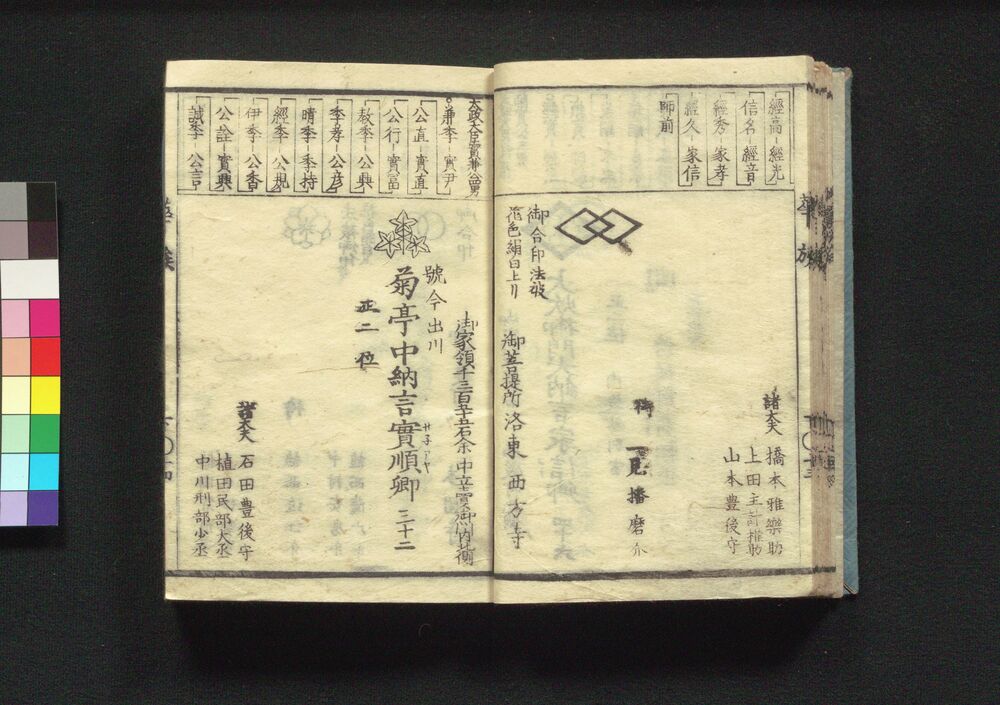 經高 經光
信名 經音
經秀 家孝
經久 家信
師前
御合印法被
花色絹白上リ
諸大夫
橋本雅樂助
上田主計權助
山本豊後守
侍
一見播磨介
御菩提所 洛東 西方寺
太政大臣實兼公四男
兼季 實尹
公直 實直
公行 實富
教季 公興
季孝 公彦
晴季 季持
經季 公規
伊季 公香
公詮 實興
誠季 公言
御家領千三百
中立賣御門内北側
號今出川
菊亭中納言實順卿 三十二
サネアヤ
正二位
諸大夫
石田豊後守
植田民部大丞
中川刑部少丞
華族